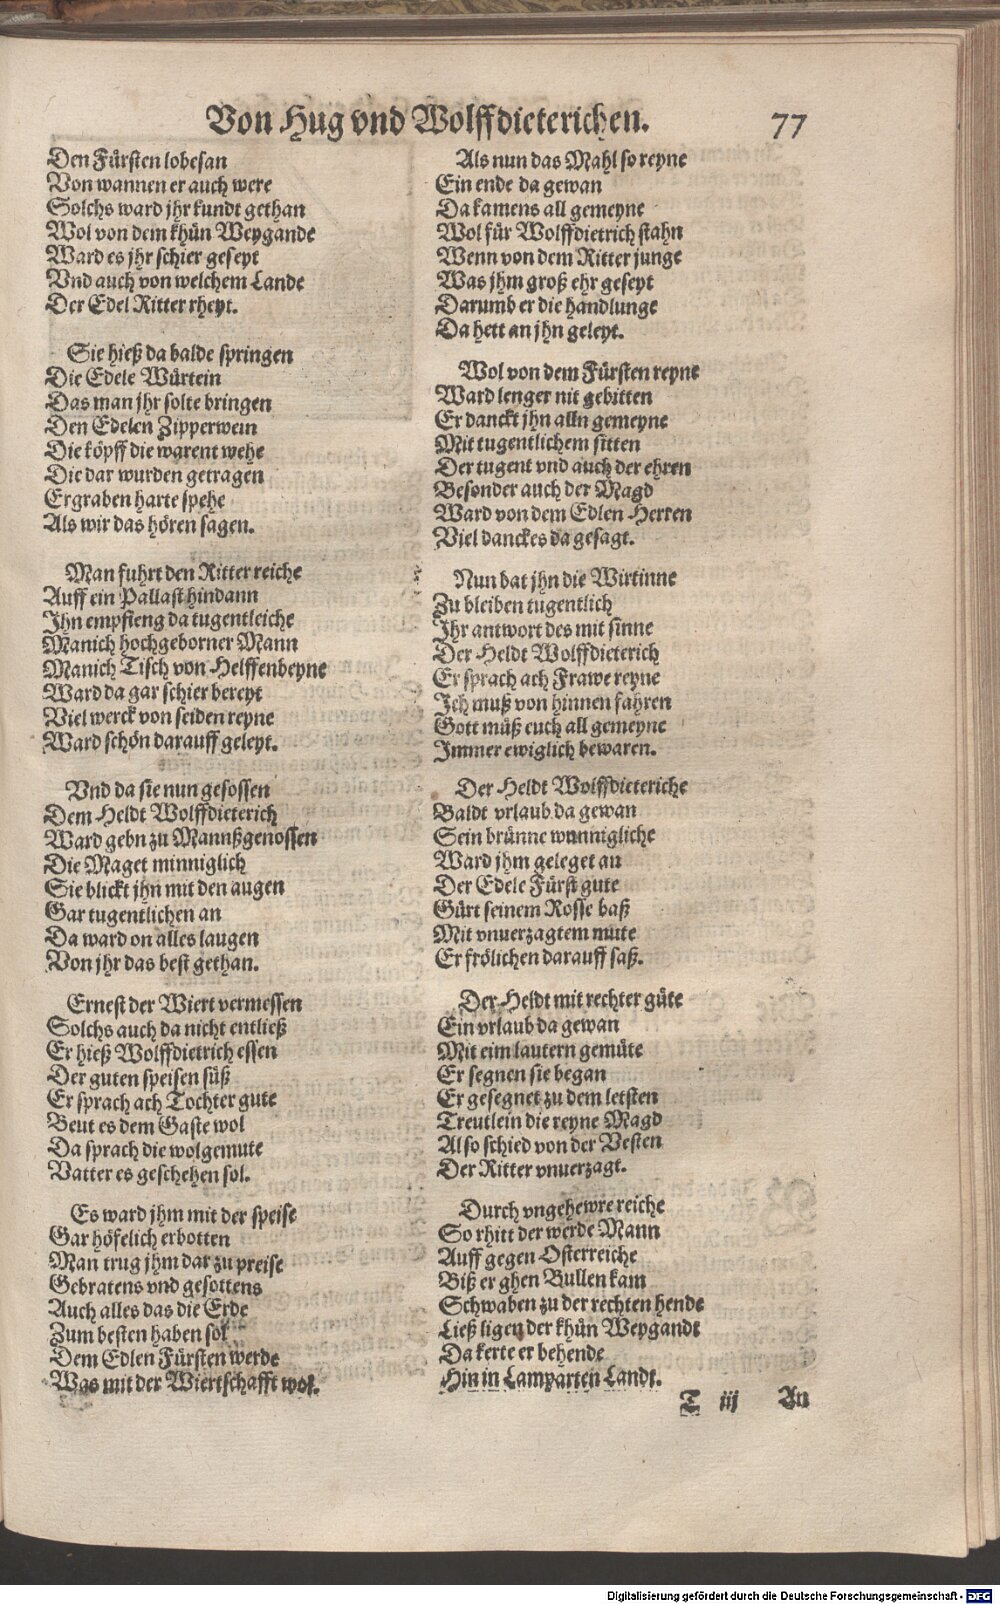 Von Hug vnd Wolffdieterichen. 77
Den Fürsten lobesan
Von wannen er auch were
Solchs ward jhr kundt gethan
Wol von dem khün Weygande
Ward es jhr schier geseyt
Vnd auch von welchem Lande
Der Edel Ritter rheyt.
Sie hieß da balde springen
Die Edele Würtein
Das man jhr solte bringen
Den Edelen Zipperwein
Die köpff die warent wehe
Die dar wurden getragen
Ergraben harte spehe
Als wir das hören sagen.
Man fuhrt den Ritter reiche
Auff ein Pallast hindann
Jhn empfieng da tugentleiche
Manich hochgeborner Mann
Manich Tisch von Helffenbeyne
Ward da gar schier bereyt
Viel werck von seiden reyne
Ward schön darauff geleyt.
Vnd da sie nun gesossen
Dem Heldt Wolffdieterich
Ward gebn zu Mannßgenossen
Die Maget minniglich
Sie blickt jhn mit den augen
Gar tugentlichen an
Da ward on alles laugen
Von jhr das best gethan.
Ernest der Wiert vermessen
Solchs auch da nicht entließ
Er hieß Wolffdietrich essen
Der guten speisen süß
Er sprach ach Tochter gute
Beut es dem Gaste wol
Da sprach die wolgemute
Vatter es geschehen sol.
Es ward jhm mit der speise
Gar höfelich erbotten
Man trug jhm dar zu preise
Gebratens vnd gesottens
Auch alles das die Erde
Zum besten haben sol
Dem Edlen Fürsten werde
Was mit der Wiertschafft wol.
Als nun das Mahl so reyne
Ein ende da gewan
Da kamens all gemeyne
Wol für Wolffdietrich stahn
Wenn von dem Ritter junge
Was jhm groß ehr geseyt
Darumb er die handlunge
Da hett an jhn geleyt.
Wol von dem Fürsten reyne
Ward lenger nit gebitten
Er danckt jhn alln gemeyne
Mit tugentlichem sitten
Der tugent vnd auch der ehren
Besonder auch der Magd
Ward von dem Edlen Herren
Viel danckes da gesagt.
Nun bat jhn die Wirtinne
Zu bleiben tugentlich
Jhr antwort des mit sinne
Der Heldt Wolffdieterich
Er sprach ach Frawe reyne
Jch muß von hinnen fahren
Gott müß euch all gemeyne
Jmmer ewiglich bewaren.
Der Heldt Wolffdieteriche
Baldt vrlaub da gewan
Sein brünne wunnigliche
Ward jhm geleget an
Der Edele Fürst gute
Gürt seinem Rosse baß
Mit vnuerzagtem mute
Er frölichen darauff saß.
Der Heldt mit rechter güte
Ein vrlaub da gewan
Mit eim lautern gemüte
Er segnen sie began
Er gesegnet zu dem letsten
Treutlein die reyne Magd
Also schied von der Vesten
Der Ritter vnuerzagt.
Durch vngehewre reiche
So rhitt der werde Mann
Auff gegen Osterreiche
Biß er ghen Bullen kam
Schwaben zu der rechten hende
Ließ ligen der khün Weygandt
Da kerte er behende
Hin in Lamparten Landt.
T iij An
Digitalisierung gefördert durch die Deutsche Forschungsgemeinschaft - DFG